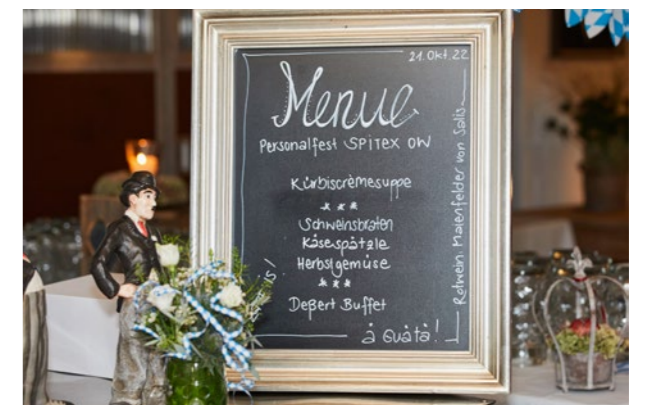 21. Okt. 22
Menue
Personalfest SPITEX OW
Kürbiscrèmesuppe
* * *
Schweinsbraten
Käsespätzle
Herbstgemüse
* * *
Deßert Buffet
ä Guätä!
Rotwein: Maienfelder von Salis